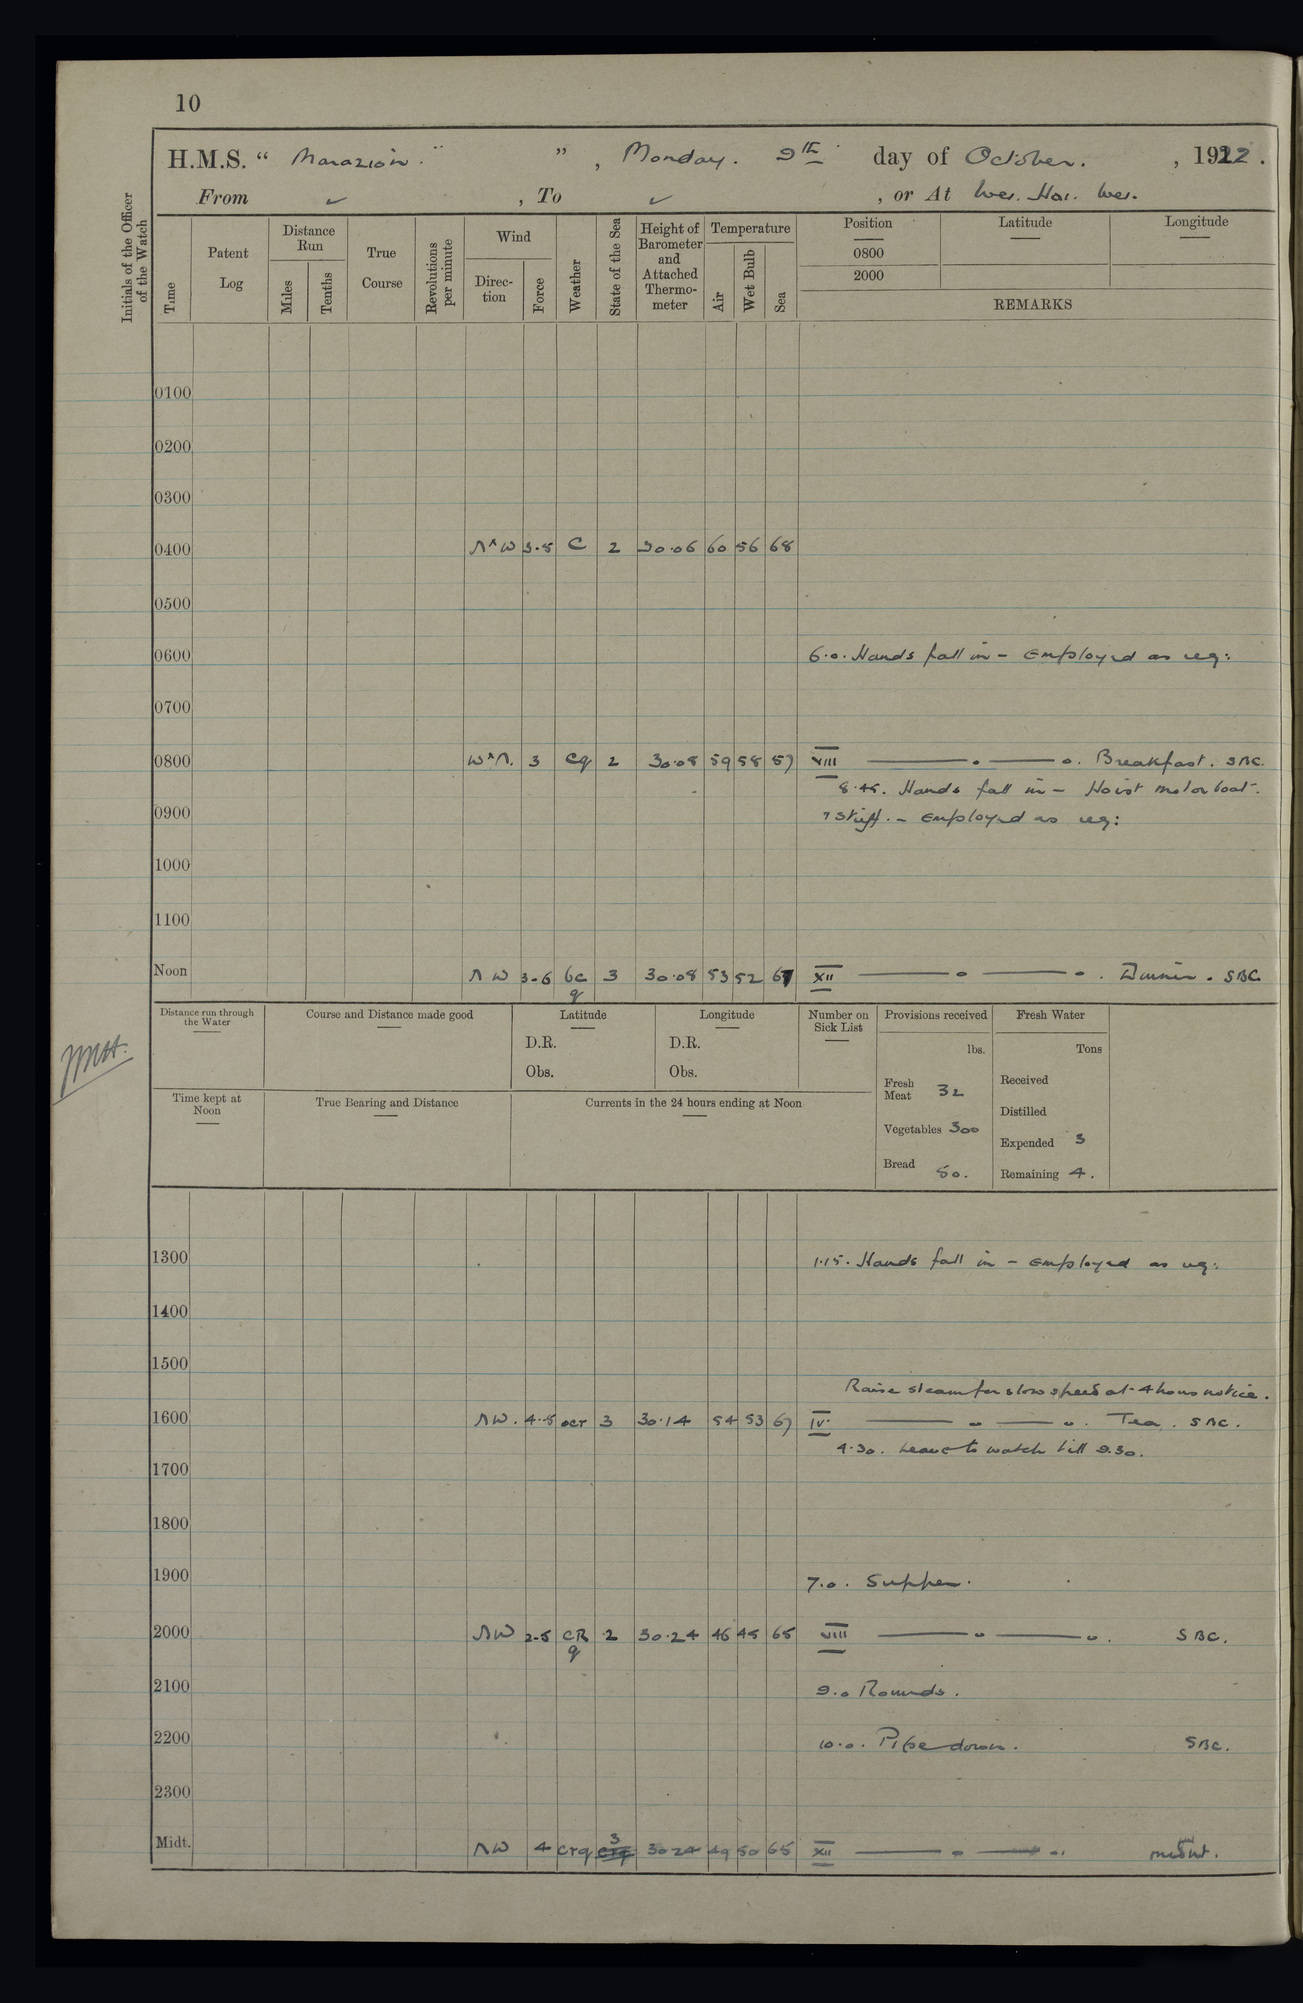 10
H.M.S. “ Marazion. ” , Monday. 9th day of October. , 1922.
From ✓ , To ✓ , or At Wei. Hai. Wei.
Initials of the Officer of the Watch
Time
Patent Log
Distance Run
Miles
Tenths
True Course
Revolutions per minute
Wind
Direction
Force
Weather
State of the Sea
Height of Barometer and Attached Thermometer
Temperature
Air
Wet Bulb
Sea
Position
Latitude
Longitude
0800
2000
REMARKS
0100
0200
0300
0400 NxW 3-5 C 2 30.06 60 56 68
0500
0600 6.0. Hands fall in - Employed as req:
0700
0800 WxN. 3 cq 2 30.08 59 58 67 VIII —— o —— o. Breakfast. SBC.
8.45. Hands fall in - Hoist motor boat.
0900 7 Skiff. - Employed as req:
1000
1100
Noon NW 3-6 bc q 3 30.08 53 52 67 XII —— o —— o. Dinner. SBC.
Distance run through the Water
Course and Distance made good
Latitude
D.R.
Obs.
Longitude
D.R.
Obs.
Number on Sick List
Provisions received
lbs.
Fresh Meat 32
Vegetables 300
Bread 50.
Fresh Water
Tons
Received
Distilled
Expended 3
Remaining 4.
Time kept at Noon
True Bearing and Distance
Currents in the 24 hours ending at Noon
1300 1.15. Hands fall in - Employed as req:
1400
1500
Raise steam for slow speed at 4 hours notice.
1600 NW. 4-5 ocr 3 30.14 54 53 67 IV —— o —— o. Tea. SBC.
4.30. Leave to watch till 9.30.
1700
1800
1900 7.0. Supper.
2000 NW 2-5 CR q 2 30.24 46 45 65 VIII —— o —— o. SBC.
2100 9.0 Rounds.
2200 10.0. Pipe down. SBC.
2300
Midt. NW 4 crq 3 30 24 49 50 65 XII —— o —— o.